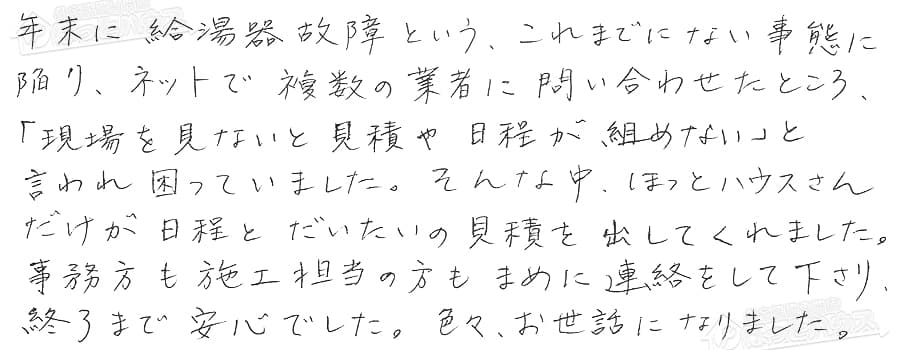 年末に給湯器故障という、これまでにない事態に
陥り、ネットで複数の業者に問い合わせたところ、
「現場を見ないと見積や日程が組めない」と
言われ困っていました。そんな中、ほっとハウスさん
だけが日程とだいたいの見積を出してくれました。
事務方も施工担当の方もまめに連絡をして下さり、
終了まで安心でした。色々、お世話になりました。